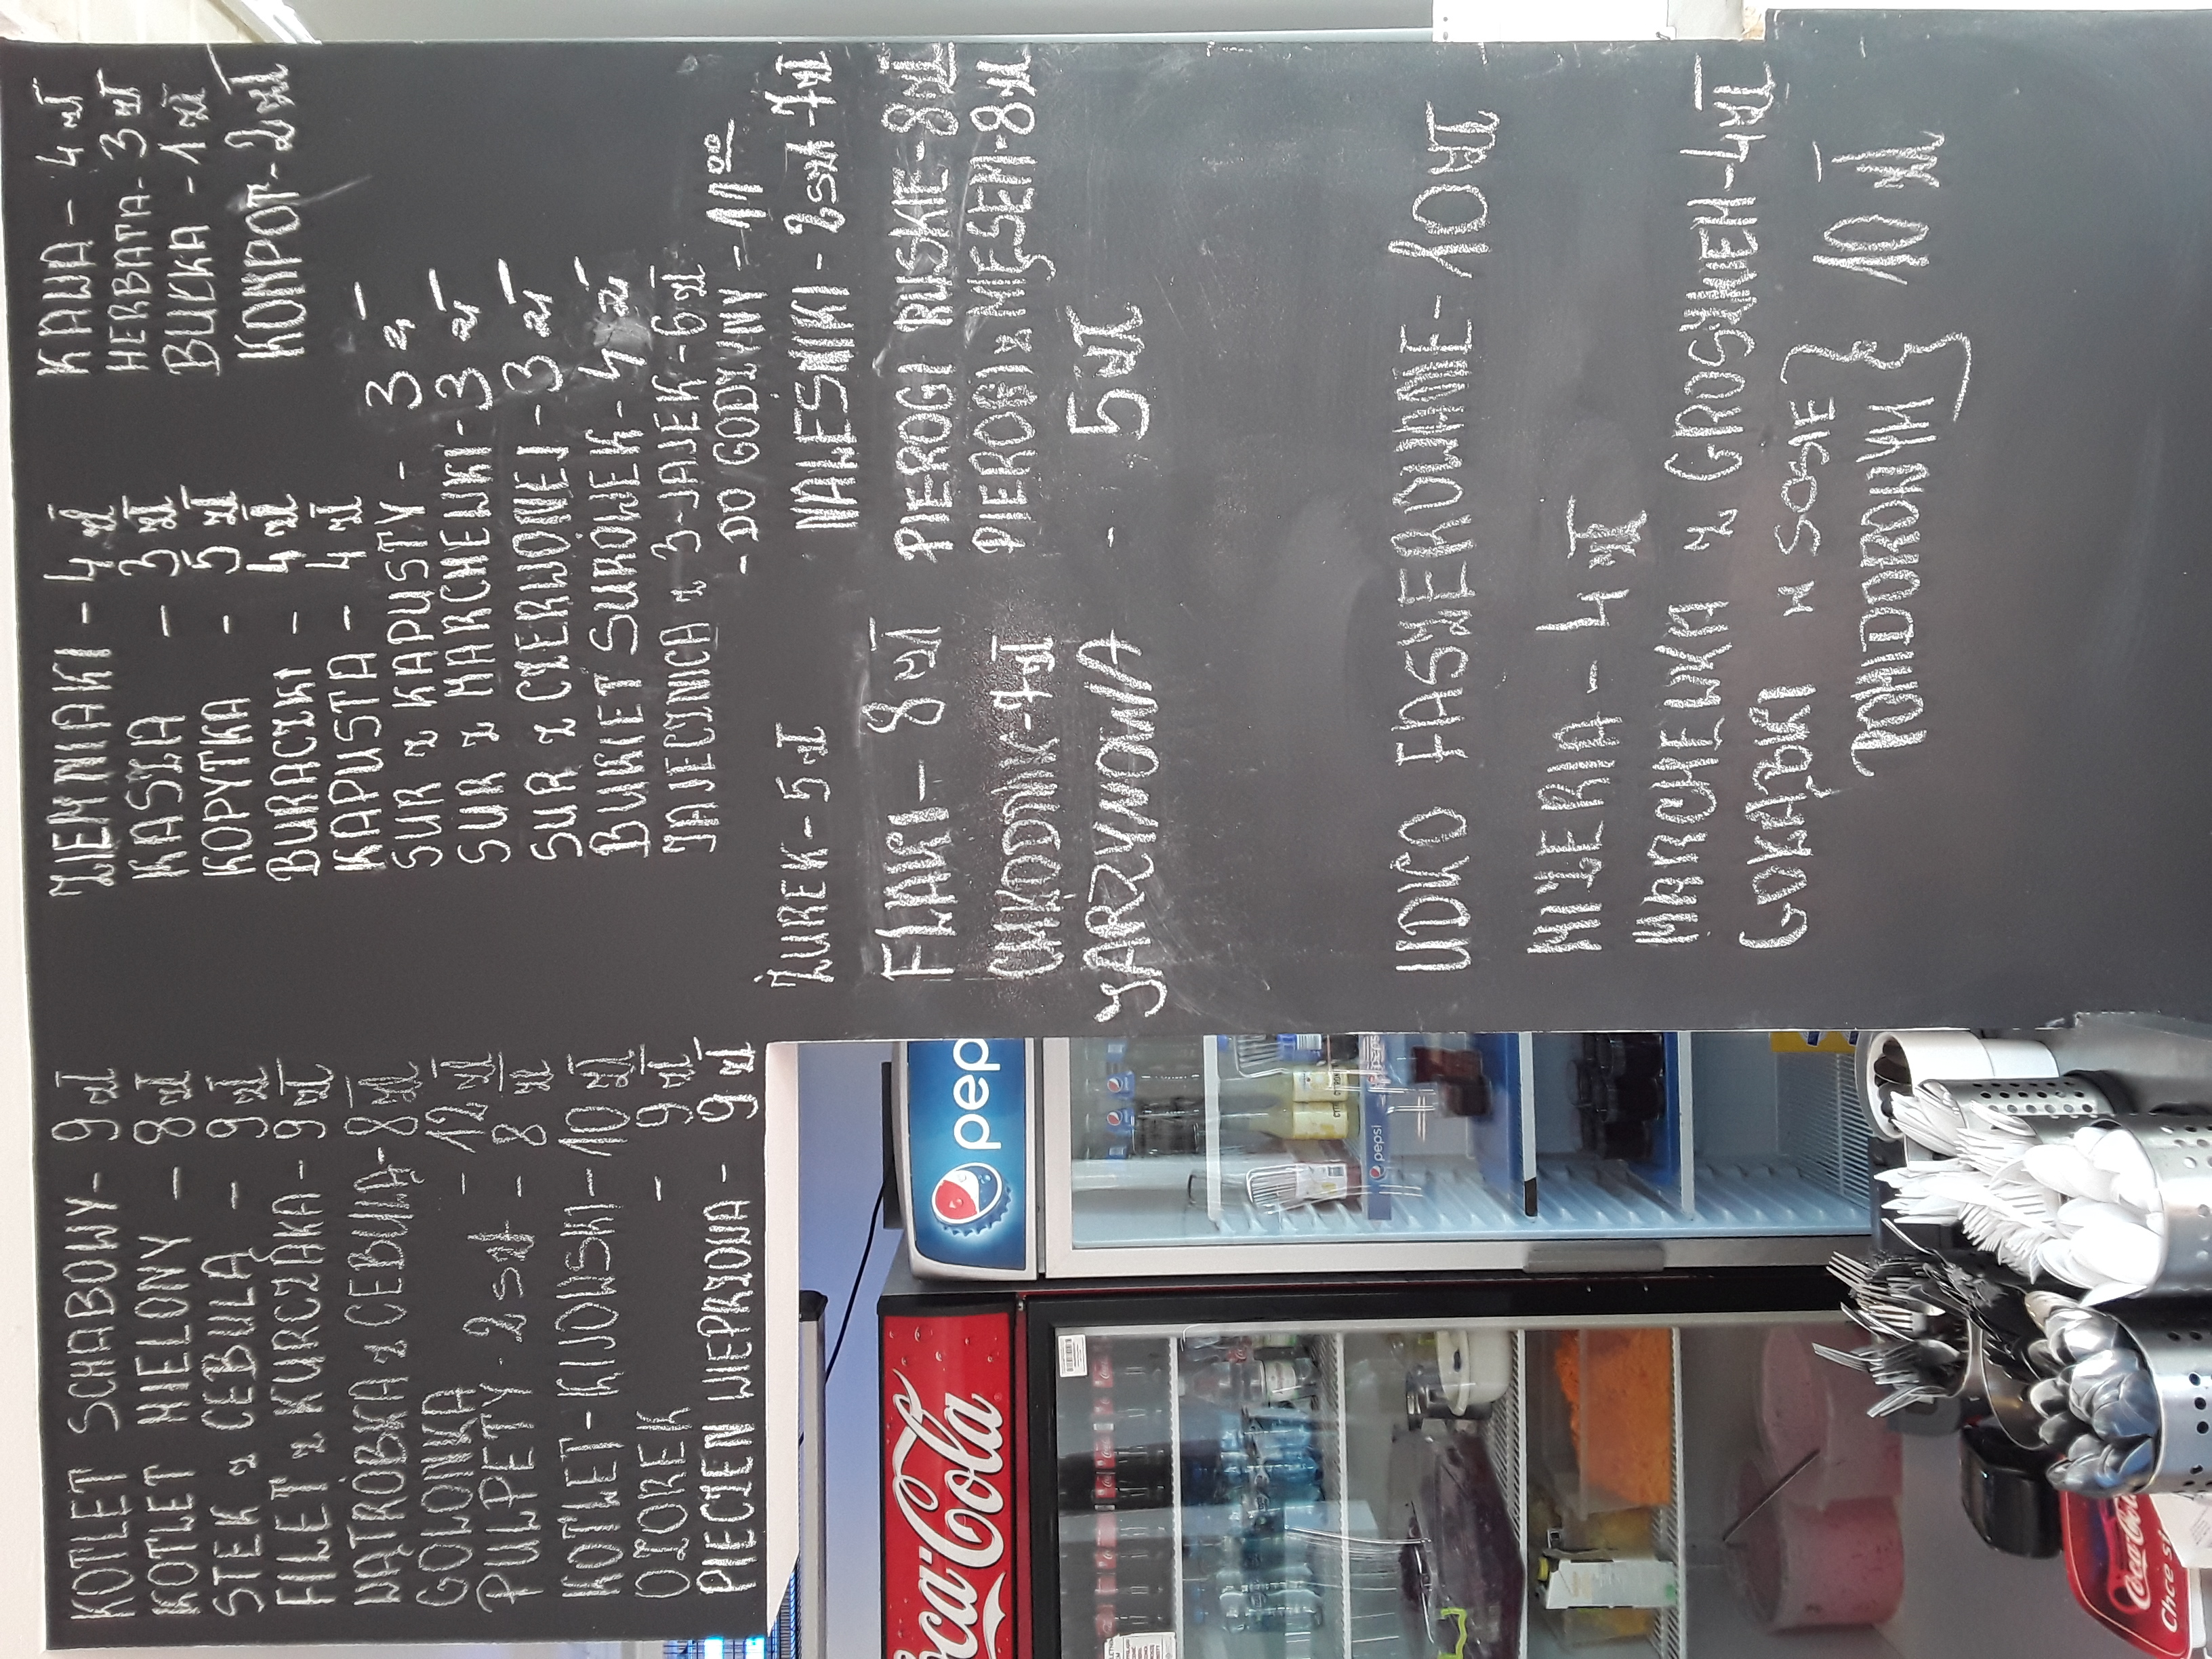 KOTLET SCHABOWY - 9 zł
KOTLET MIELONY - 8 zł
STEK z CEBULĄ - 9 zł
FILET z KURCZAKA - 9 zł
WĄTRÓBKA z CEBULĄ - 8 zł
GOLONKA - 12 zł
PULPETY - 2 szt - 8 zł
KOTLET - KIJOWSKI - 10 zł
OZOREK - 9 zł
PIECZEŃ WIEPRZOWA - 9 zł
ZIEMNIAKI - 4 zł
KASZA - 3 zł
KOPYTKA - 5 zł
BURACZKI - 4 zł
KAPUSTA - 4 zł
SUR z KAPUSTY - 3 zł
SUR z MARCHEWKI - 3 zł
SUR z CZERWONEJ - 3 zł
BUKIET SURÓWEK - 4 zł
JAJECZNICA z 3-JAJEK - 6 zł
- DO GODZINY - 11 00
KAWA - 4 zł
HERBATA - 3 zł
BUŁKA - 1 zł
KOMPOT - 2 zł
NALEŚNIKI - 2 szt - 7 zł
ŻUREK - 5 zł
PIEROGI RUSKIE - 8 zł
FLAKI - 8 zł
PIEROGI z MIĘSEM - 8 zł
CHŁODNIK - 7 zł
JARZYNOWA - 5 zł
UDKO FASZEROWANE - 10 zł
MIZERIA - 4 zł
MARCHEWKA z GROSZKIEM - 4 zł
GOŁĄBKI w SOSIE
POMIDOROWYM } 10 zł
pep
pepsi
Coca-Cola
Coca-Cola